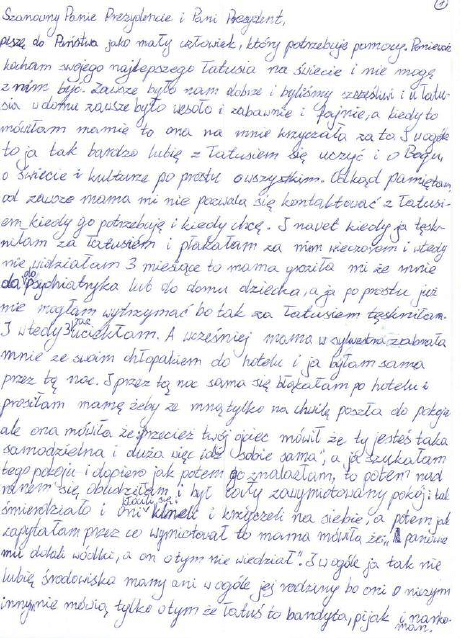 1
Szanowny Panie Prezydencie i Pani Prezydent,
piszę do Państwa jako mały człowiek, który potrzebuje pomocy. Ponieważ
kocham swojego najlepszego Tatusia na świecie i nie mogę
z nim być. Zawsze było nam dobrze i byliśmy szczęśliwi i u Tatu-
sia w domu zawsze było wesoło i zabawnie i fajnie, a kiedy to
mówiłam mamie to ona na mnie krzyczała za to. I w ogóle
to ja tak bardzo lubię z Tatusiem się uczyć i o Bogu,
o świecie i kulturze po prostu o wszystkim. Odkąd pamiętam,
od zawsze mama mi nie pozwala się kontaktować z Tatusi-
em, kiedy go potrzebuję i kiedy chcę. I nawet kiedy ja tęsk-
niłam za Tatusiem i płakałam za nim wieczorem i wtedy
nie widziałam 3 miesiące to mama groziła mi że mnie
da do psychiatryka lub do domu dziecka, a ja po prostu już
nie mogłam wytrzymać bo tak za Tatusiem tęskniłam.
I wtedy 3 raz uciekłam. A wcześniej mama w sylwestra zabrała
mnie ze swoim chłopakiem do hotelu i ja byłam sama
przez tą noc. I przez tą noc sama się błąkałam po hotelu i
prosiłam mamę żeby ze mną tylko na chwilę poszła do pokoju
ale ona mówiła że "przecież twój ojciec mówił że ty jesteś taka
samodzielna i duża więc idź sobie sama", a ja szukałam
tego pokoju i dopiero jak potem go znalazłam, to potem nad
ranem się obudziłam i był cały zawymiotowany pokój i tak
śmierdziało i oni i krzyczeli na siebie, a potem jak
zapytałam przez co wymiotował to mama mówiła że, " panowie
mu dolali wódki, a on o tym nie wiedział". I w ogóle ja tak nie
lubię środowiska mamy ani w ogóle jej rodziny bo oni o niczym
innym nie mówią, tylko o tym że Tatuś to bandyta, pijak i narko-
man,